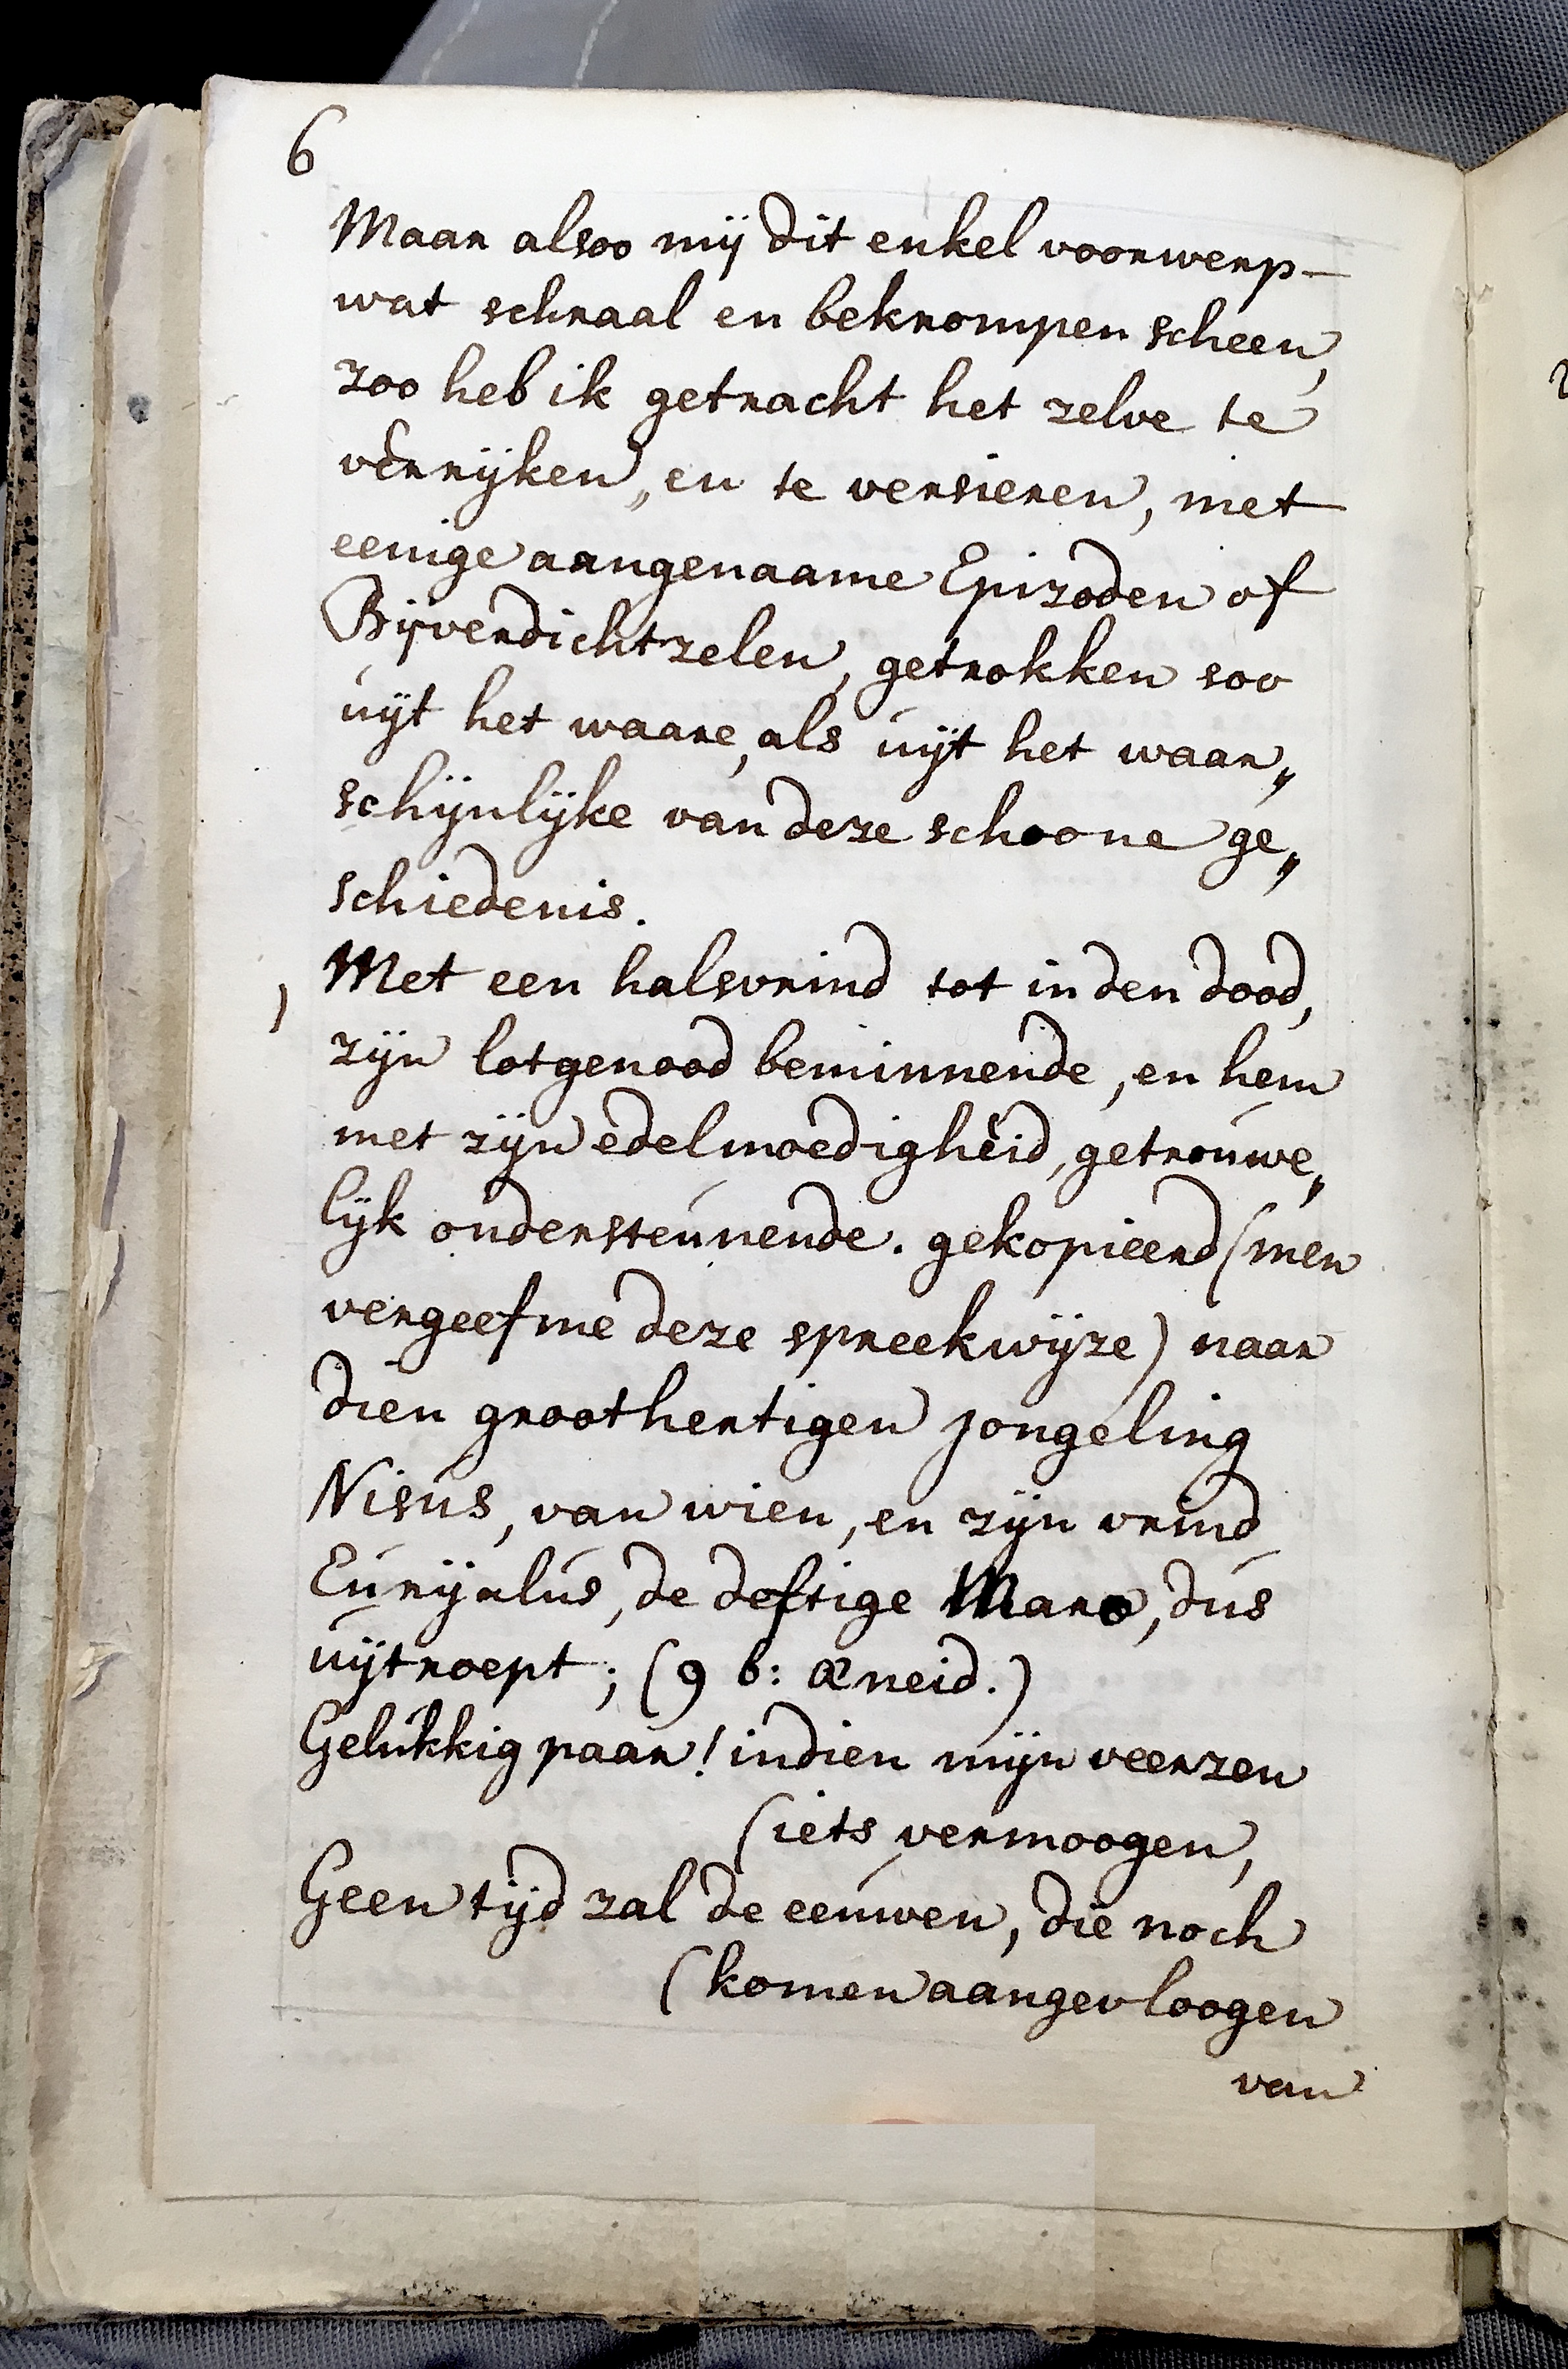 6
Maar alsoo mij dit enkel voorwerp
wat schraal en bekrompen scheen,
zoo heb ik getracht het zelve te
verrijken„ en te versieren, met
eenige aangenaame Epizoden of
Bijverdichtzelen, getrokken soo
uijt het waare, als uijt het waar„
schijnlijke van deze schoone ge„
schiedenis.
) Met een halsvrind tot in den dood,
zijn lotgenood beminnende, en hem
met zijn edelmoedigheid, getrouwe„
lijk ondersteunende. gekopieerd (men
vergeef me deze spreekwijze) naar
dien groothertigen jongeling
Nisus, van wien, en zijn vrind
Eurijalus, de deftige Maro, dus
uijtroept; (9 b: æneid.)
Gelukkig paar! indien mijn veerzen
(iets vermoogen,
Geen tijd zal de eeuwen, die noch
(komen aangevloogen
van